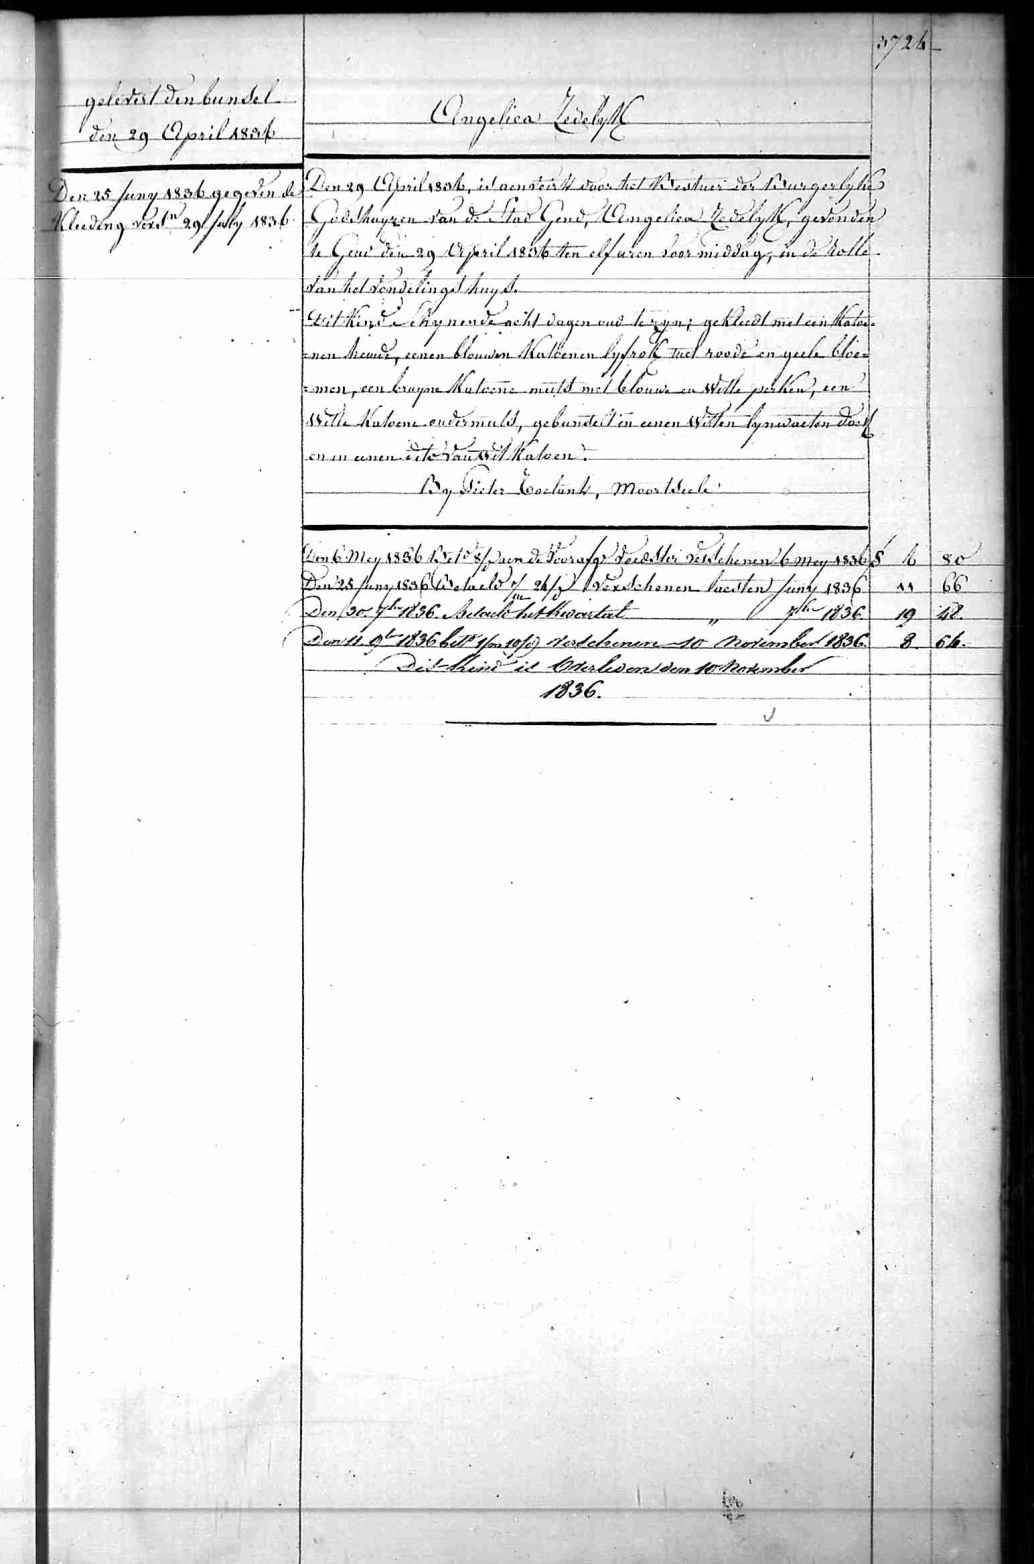 3724
geleverd den bundel
den 29 April 1836
Angelica Zedelyk
Den 25 Juny 1836 gegeven de
Kleeding versn 29 July 1836
Den 29 April 1836, is aenveirt door het Bestuer der Burgerlyke
Godshuyzen van de Stad Gend, Angelica Zedelyk, gevonden
te Gend den 29 April 1836 ten elf uren voormiddag, in de Rolle
van het vondelingshuys.
Dit Kind schynende acht dagen oud te zyn; gekleedt met een Katoe-
=nen hemde, eenen blouwen Katoenen lyfrok met roode en geele bloe=
=men, een bruyne Katoene muts met blouwe en Witte perken, een
Witte Katoene ondermuts, gebundelt in eenen Witten lynwaeten doek
en in eenen dito van Wit Katoen.
By Pieter , Moortseele
Den 6 Mey 1836 aen de Voedster verschenen 6 Mey 1836 6 80
Den 25 Juny 1836 Betaeld Verschenen laesten Juny 1836 11 66
Den 30 7bre 1836. Betaelt het kwartaal " 7bre 1836. 19 48.
Den 11 9br 1836 verschenen 10 November 1836. 8. 64.
Dit Kind is Overleden den 10 November
1836.